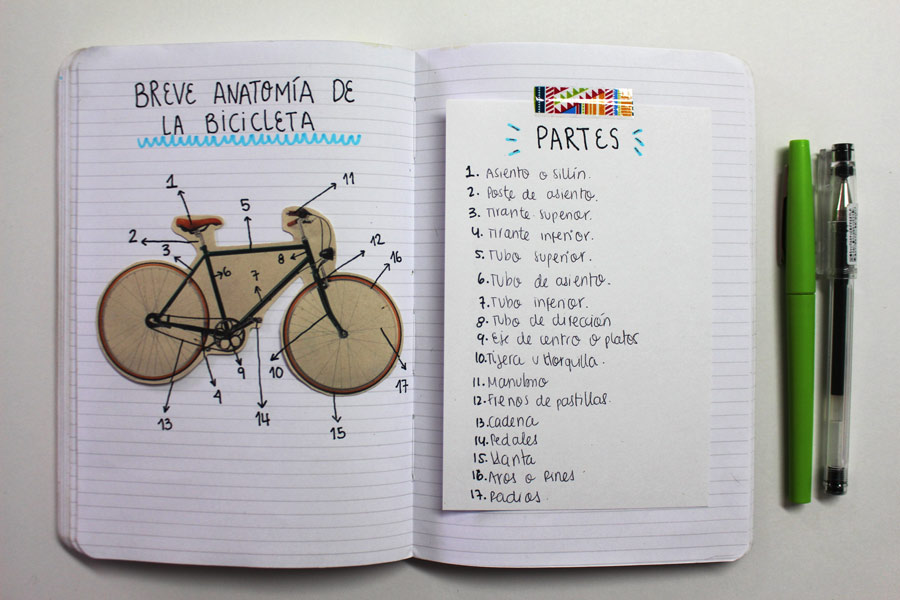 BREVE ANATOMÍA DE
LA BICICLETA
1
11
5
2
12
3
16
6
7
8
9
10
17
4
13
14
15
PARTES
1. Asiento o sillín.
2. Poste de asiento.
3. Tirante superior.
4. Tirante inferior.
5. Tubo superior.
6. Tubo de asiento.
7. Tubo inferior.
8. Tubo de dirección
9. Eje de centro o platos
10. Tijera u Horquilla.
11. Manubrio
12. Frenos de pastillas.
13. Cadena
14. Pedales
15. Llanta
16. Aros o Rines
17. Radios.